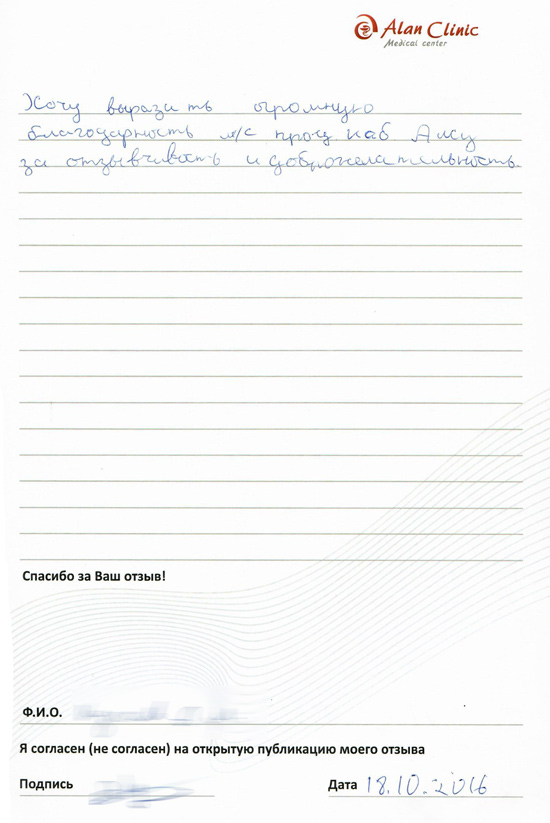 Alan Clinic
Medical center
Хочу выразить огромную
благодарность м/с проц каб Алсу
за отзывчивость и доброжелательность.
Спасибо за Ваш отзыв!
Ф.И.О.
Я согласен (не согласен) на открытую публикацию моего отзыва
Подпись
Дата 18.10.2016